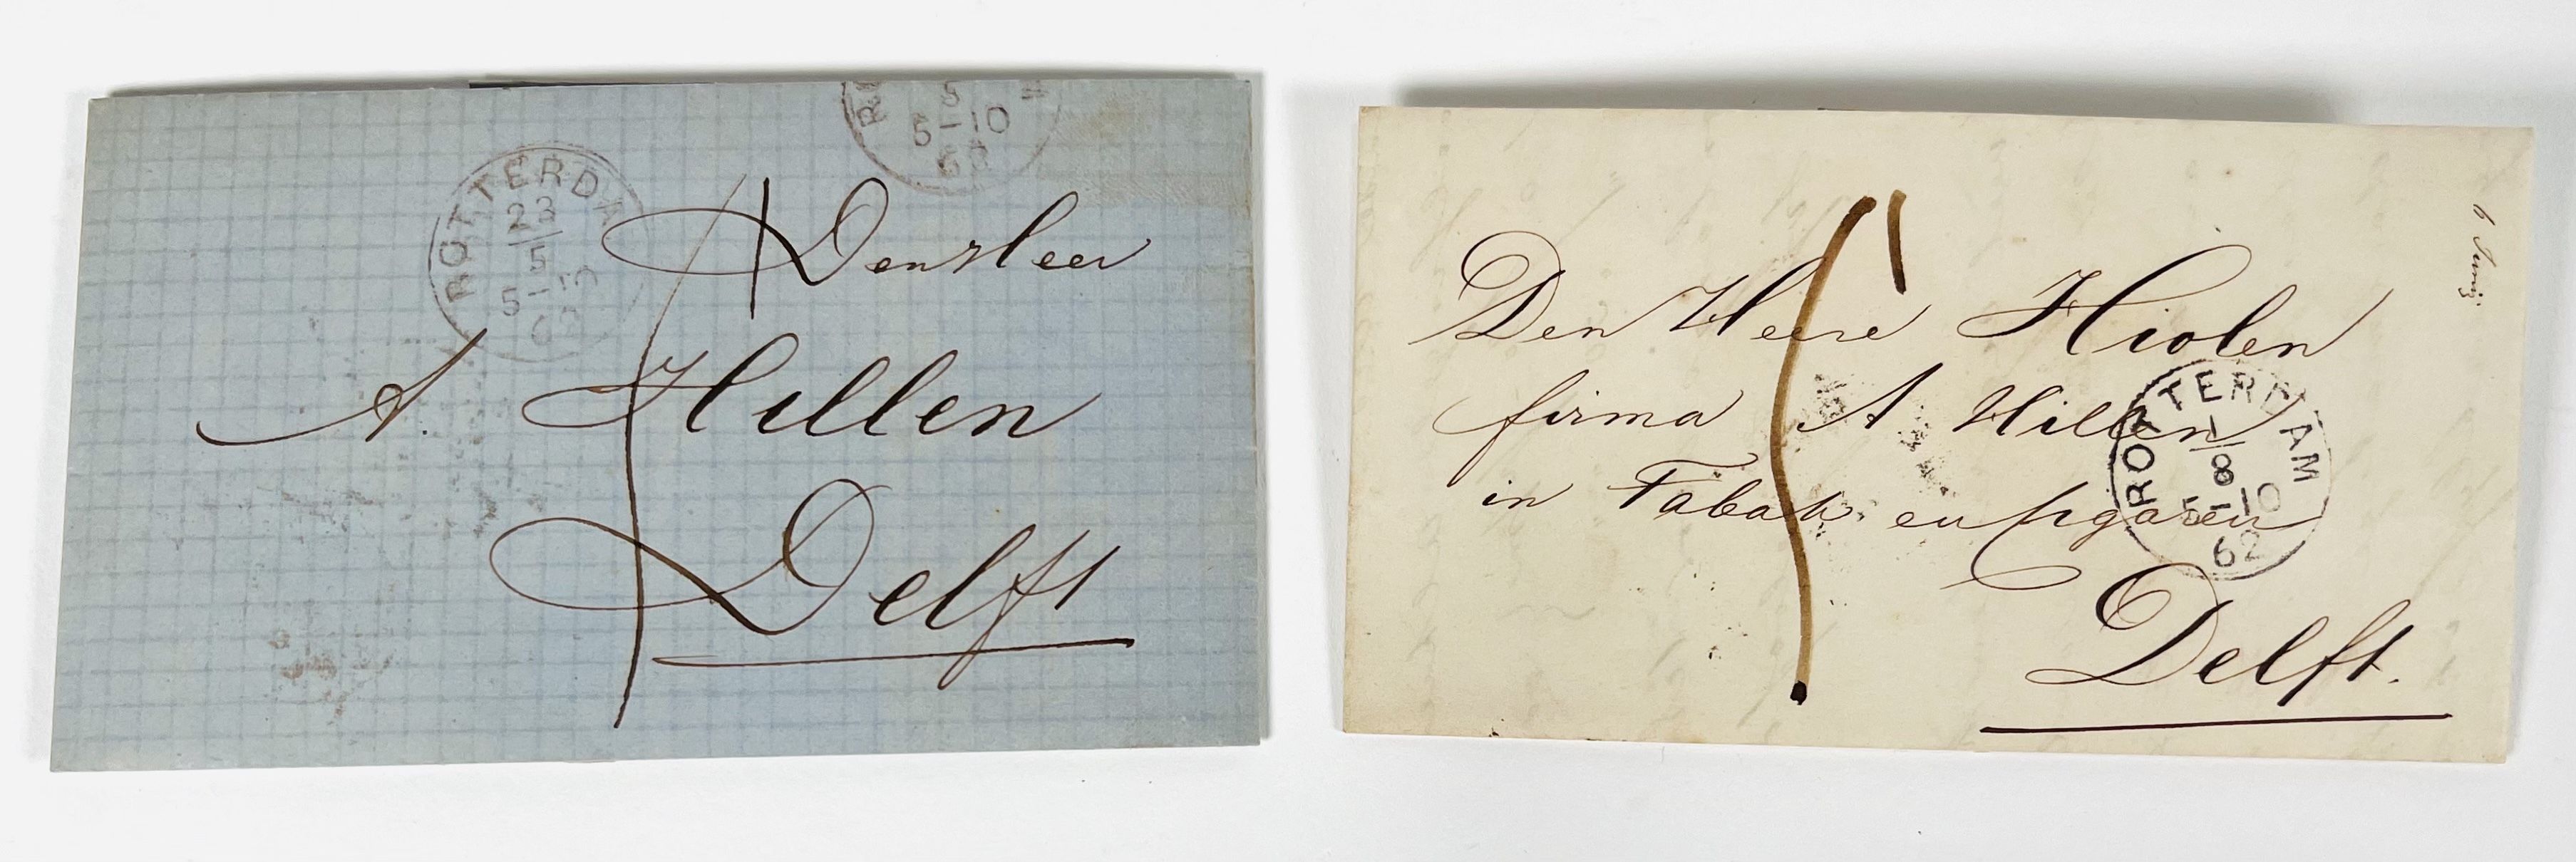 5
5-10
ROTTERDA
23
5
5-10
Den Heer
A. Hillen
Delft
Den Heere Hiolen
firma A Hillen
in Tabak en Sigaren
Delft.
ROTTERDAM
1
8
5-10
62
6 Junij